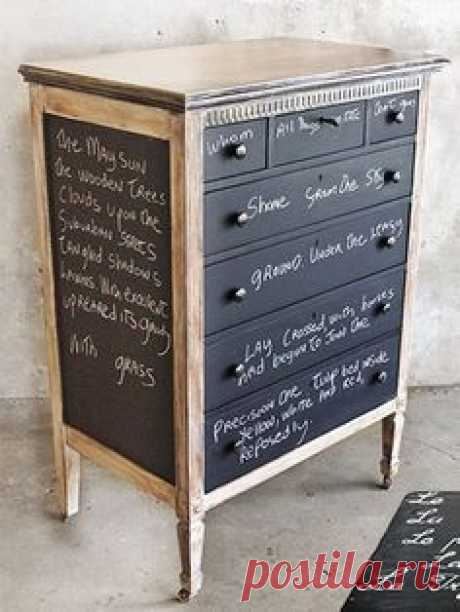 The May sun
The wooden trees
Clouds upon the
Suburban
tangled shadows
Lawns With excellent
upreared its gravity
With grass
Whom
All Things
Don't
Shone from the Sky
GROUND. Under the
LAY Crossed, with
had begun to Join the
PRECISION One Tulip bed inside
Yellow, White And Red,
Reposedly.
postila.ru